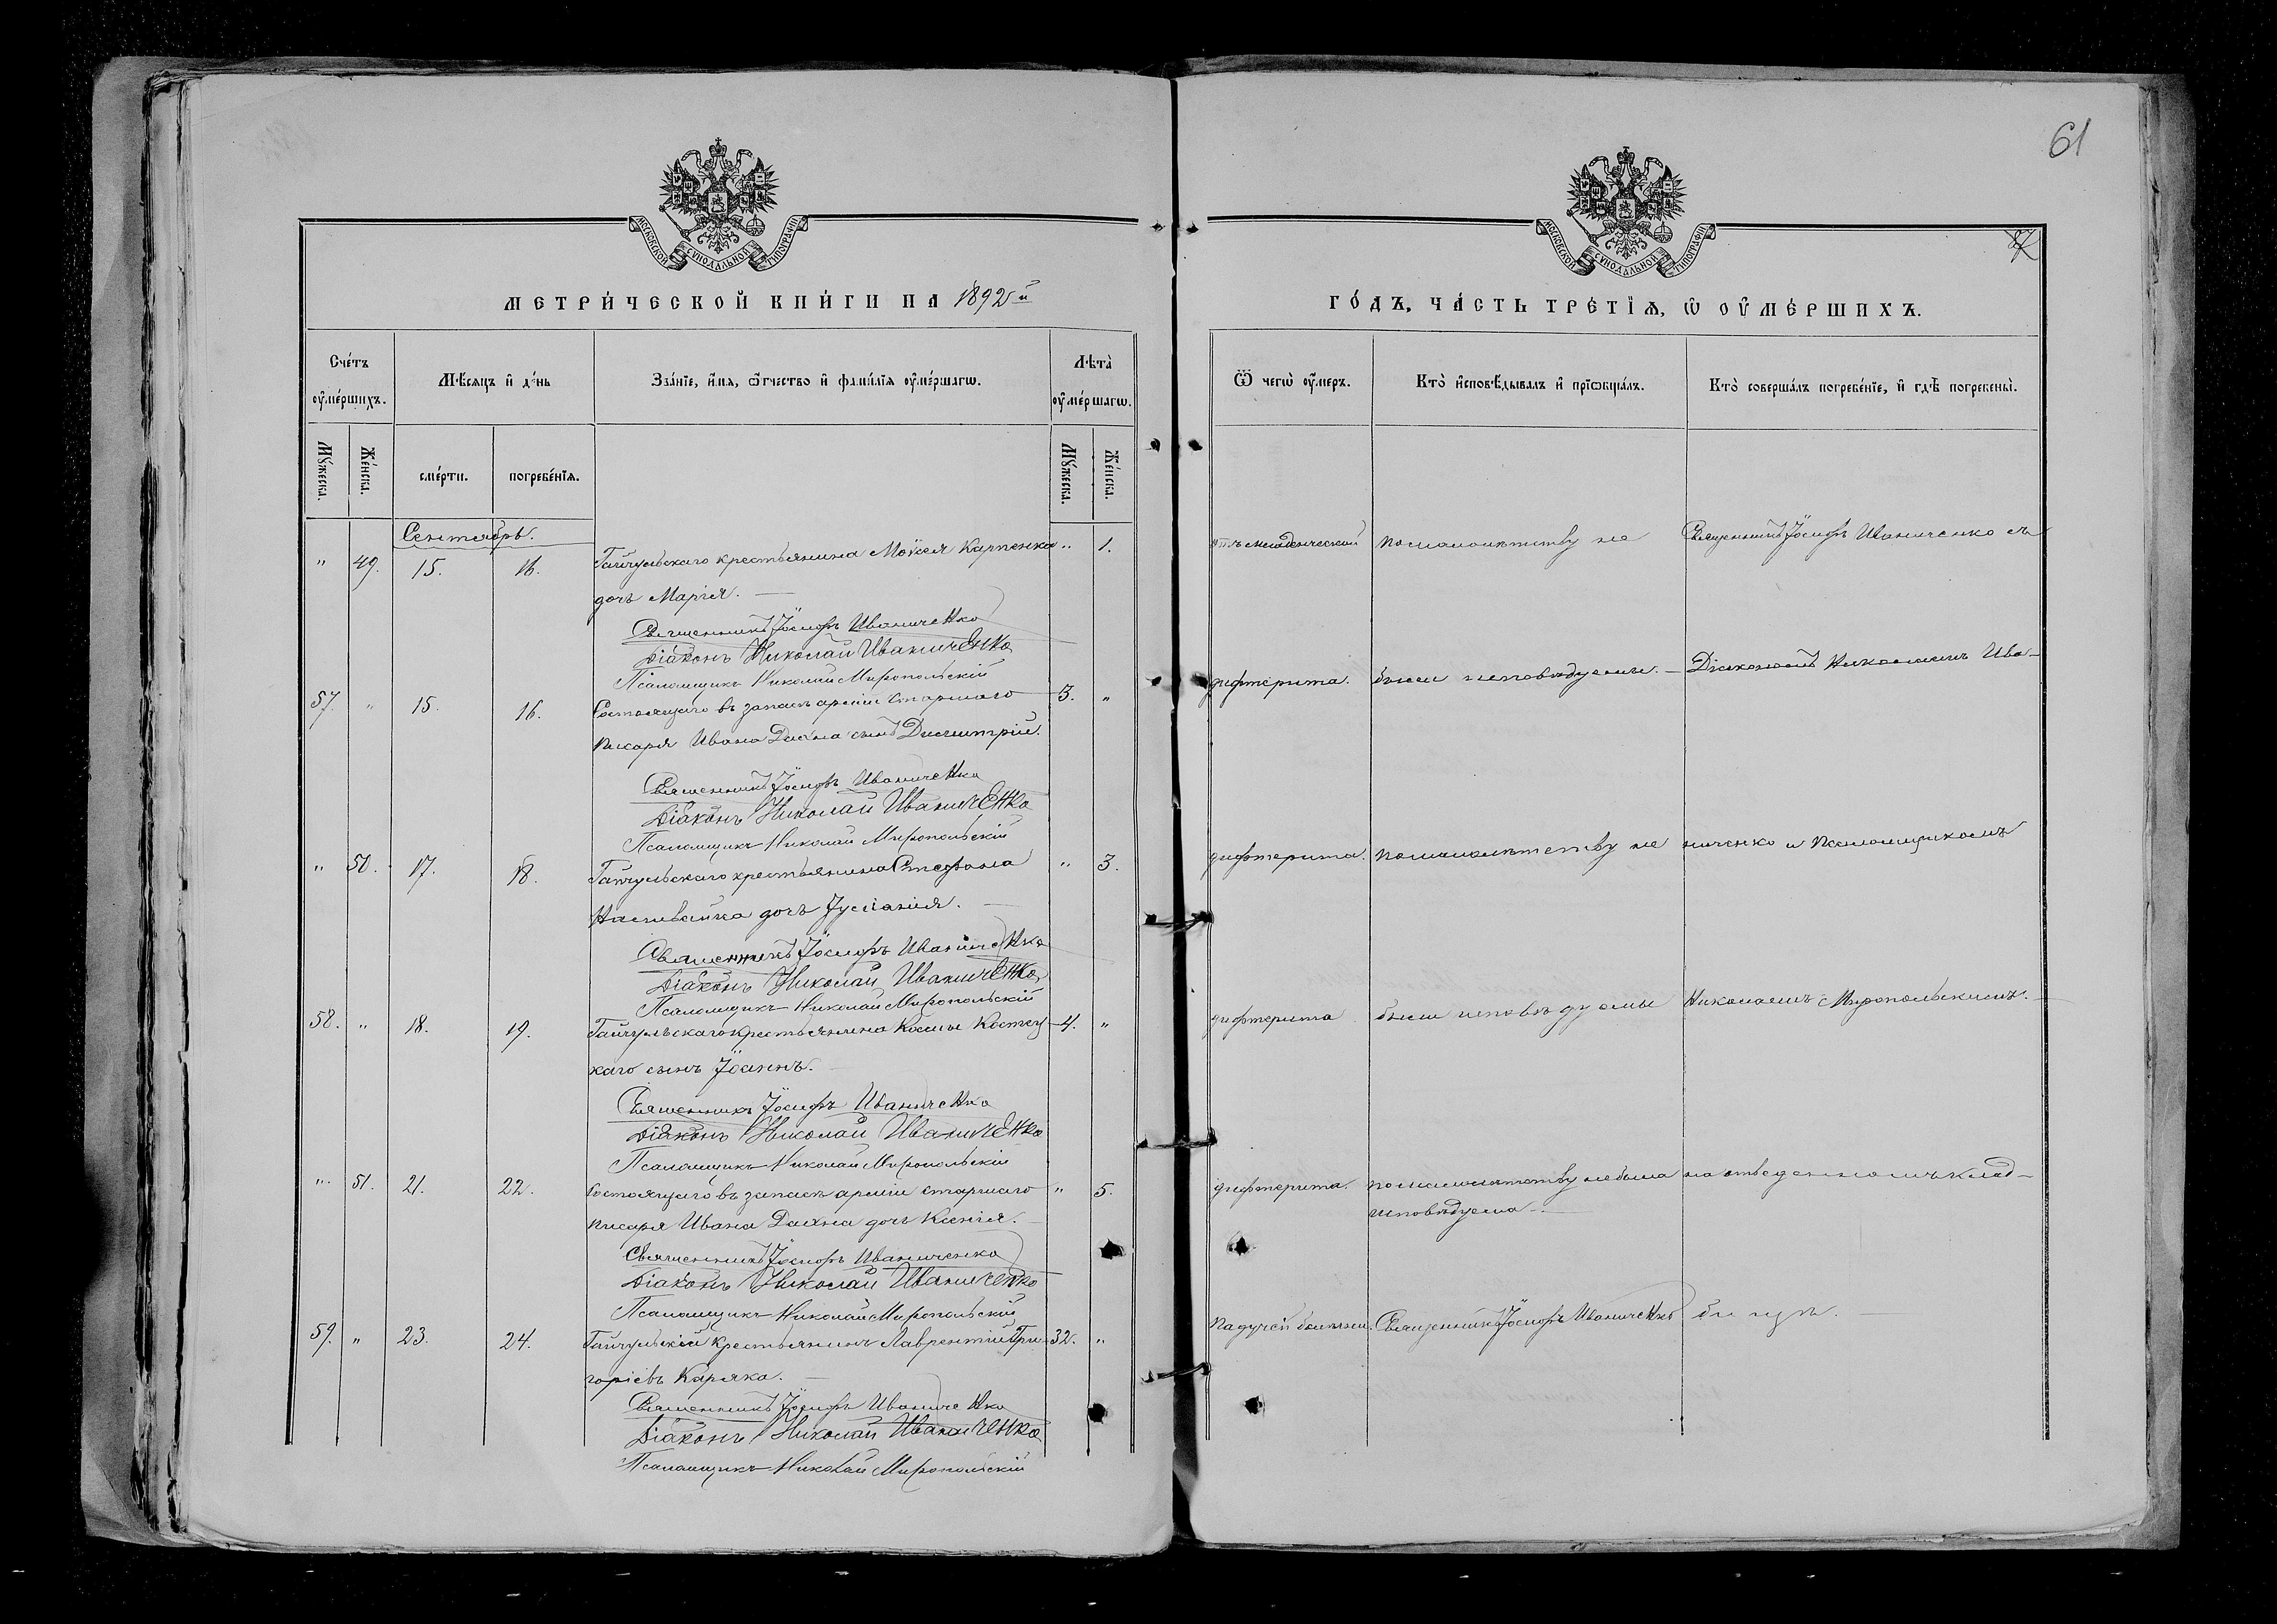 61
87
МОСКОВСКОЙ СѴНОДАЛЬНОЙ ТИПОГРАФІИ
МОСКОВСКОЙ СѴНОДАЛЬНОЙ ТИПОГРАФІИ
МЕТРИ́ЧЕСКОЙ КНИ́ГИ НА 1892й
Сче́тъ ᲂу҆ме́ршихъ.
Мѣ́сяцъ и҆ де́нь
Зва́нїе, и҆́мя, ѻ҆́тчество и҆ фамі́лїя ᲂу҆ме́ршагѡ.
Лѣта̀ ᲂу҆ме́ршагѡ.
Мꙋ́жеска.
Же́нска.
сме́рти.
погребе́нїя.
Мꙋ́жеска.
Же́нска.
Сентябрь.
" 49. 15. 16. Гайчульскаго крестьянина Мокея Карпенка " 1.
дочь Марія.
Священникъ Іосифъ Иваниченко
Діаконъ Николай Иваниченко
Псаломщикъ Николай Миропольскій
57. " 15. 16. Состоящаго въ запасѣ арміи старшаго 3. "
писаря Ивана Дахна сынъ Димитрій.
Священникъ Іосифъ Иваниченко
Діаконъ Николай Иваниченко
Псаломщикъ Николай Миропольскій
" 50. 17. 18. Гайчульскаго крестьянина Стефана " 3.
дочь Іуліанія.
Священникъ Іосифъ Иваниченко
Діаконъ Николай Иваниченко
Псаломщикъ Николай Миропольскій
58. " 18. 19. Гайчульскаго крестьянина Космы Костец 4. "
каго сынъ Іоаннъ.
Священникъ Іосифъ Иваниченко
Діаконъ Николай Иваниченко
Псаломщикъ Николай Миропольскій
" 51. 21. 22. Состоящаго въ запасѣ арміи старшаго " 5.
писаря Ивана Дахна дочь Ксенія.
Священникъ Іосифъ Иваниченко
Діаконъ Николай Иваниченко
Псаломщикъ Николай Миропольскій
59. " 23. 24. Гайчульскій крестьянинъ Лаврентій Гри- 32. "
горіевъ Каряка.
Священникъ Іосифъ Иваниченко
Діаконъ Николай Иваниченко
Псаломщикъ Николай Миропольскій
ГО́ДЪ, ЧА́СТЬ ТРЕ́ТЇѦ, Ѡ҆ ᲂУ҆МЕ́РШИХЪ.
Ѿ чегѡ̀ ᲂу҆́меръ.
Кто̀ и҆сповѣ́дывалъ и҆ прїѡбща́лъ.
Кто̀ соверша́лъ погребе́нїе, и҆ гдѣ̀ погребены̀.
отъ младенческой по малолѣтству не Священникъ Іосифъ Иваниченко съ
дифтерита. были исповѣдуемы. Діакономъ Николаемъ Ива-
дифтерита. по малолѣтству не ниченко и Псаломщикомъ
дифтерита были исповѣдуемы Николаемъ Миропольскимъ.
дифтерита. по малолѣтству не была на отведенномъ клад-
исповѣдуема.
падучей болѣзни. Священникъ Іосифъ Иваниченко бищѣ.